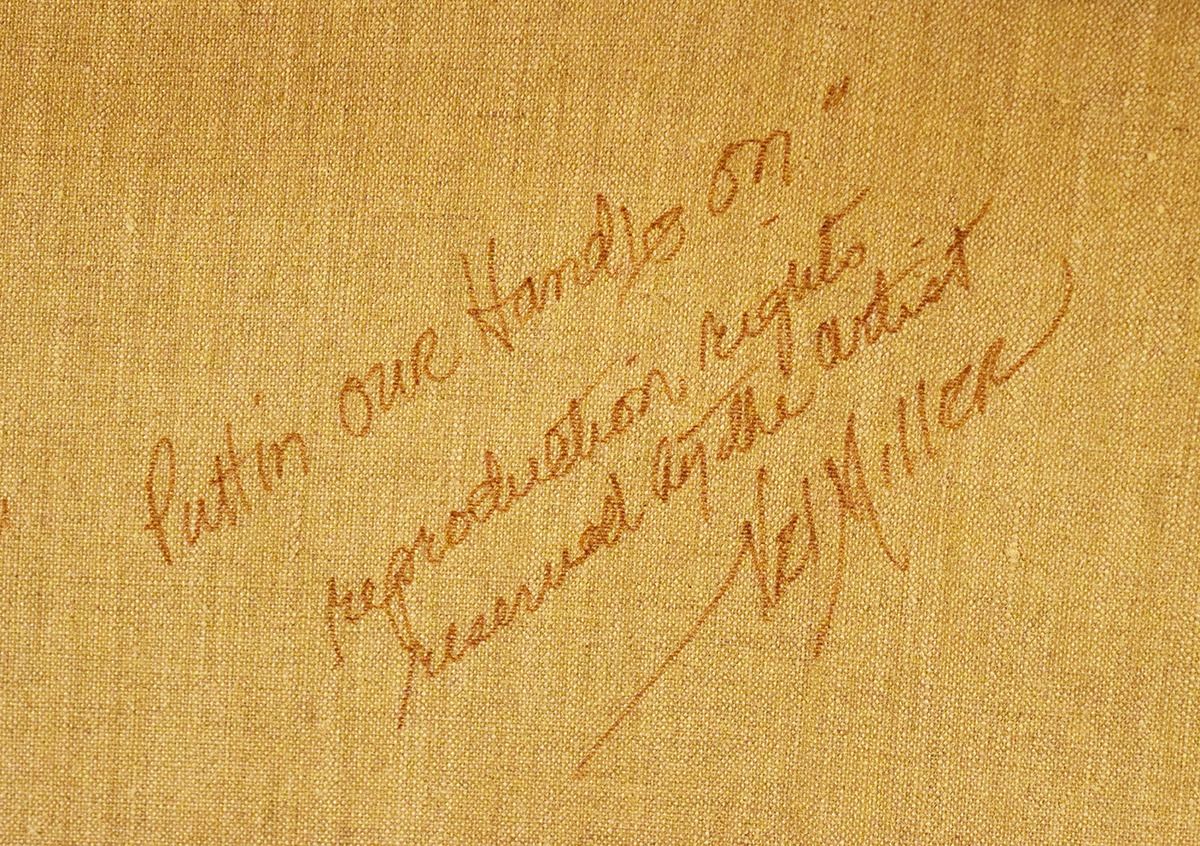 Puttin our Handles on"
reproduction rights
reserved by the artist
Vel Miller